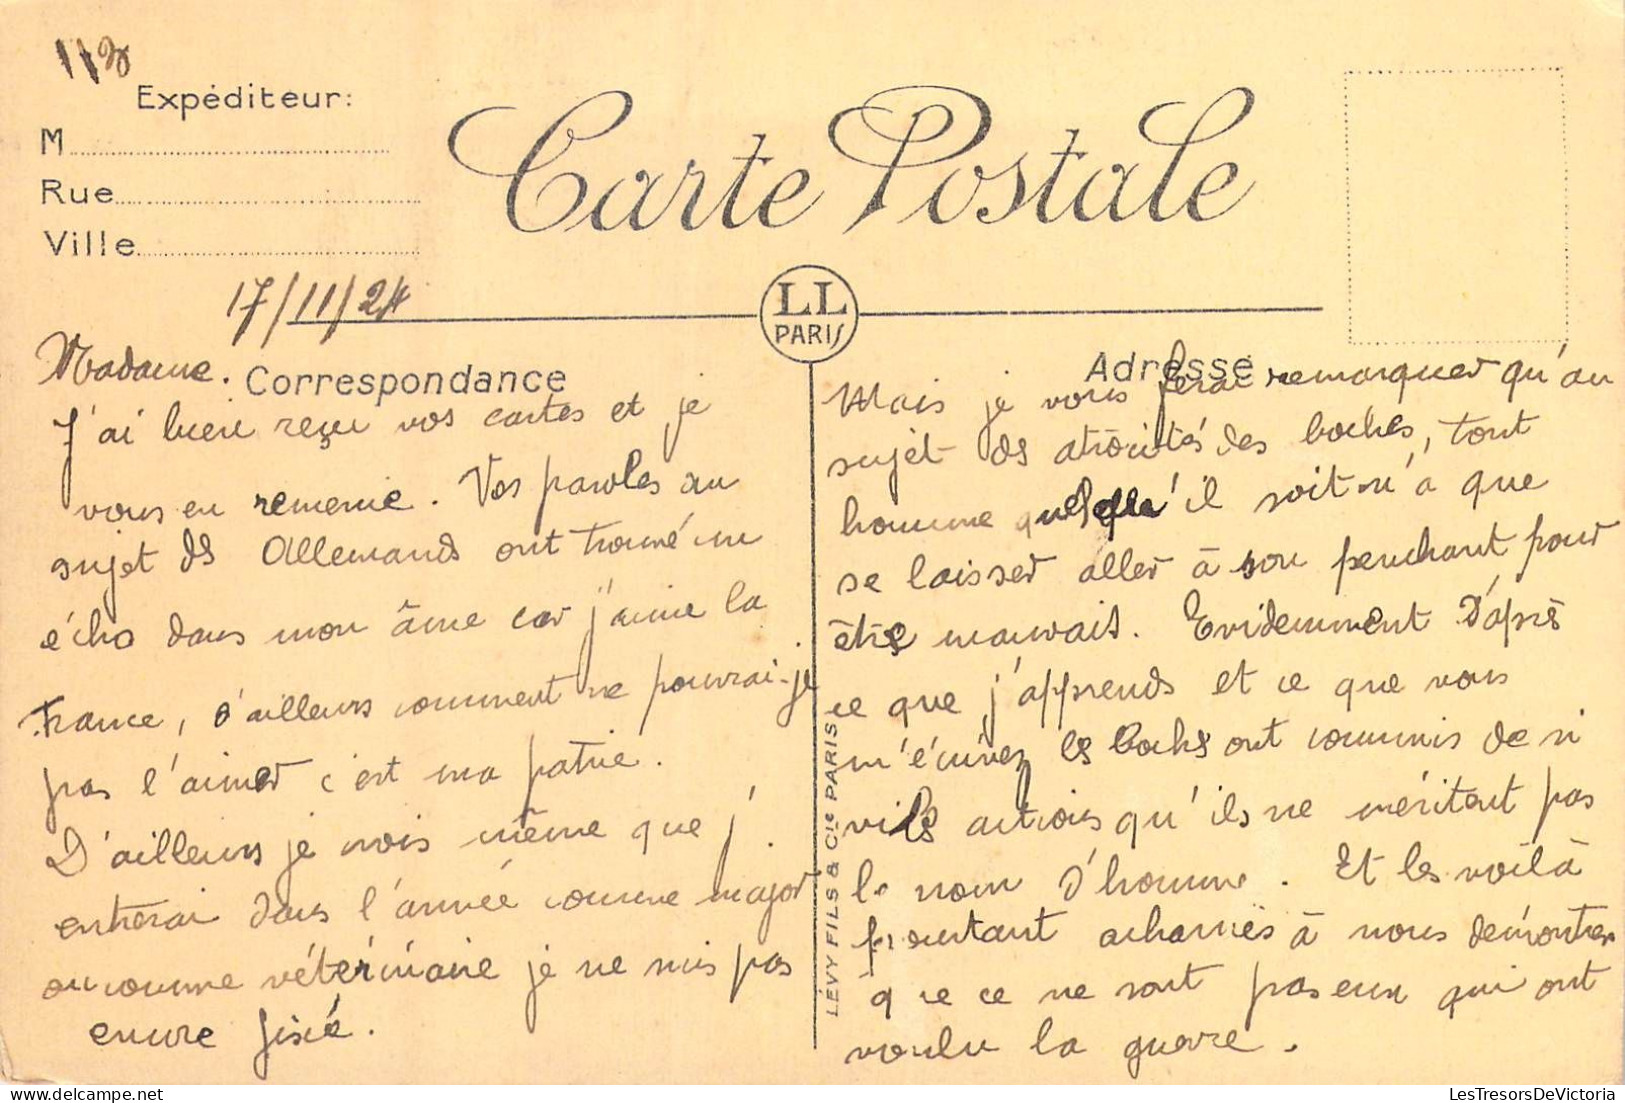 113
Expéditeur:
M
Rue
Ville
Carte Postale
17/11/24
LL
PARIS
Madame.
Correspondance
J'ai bien reçu vos cartes et je
vous en remercie. Vos paroles au
sujet ds Allemands ont trouvé un
écho dans mon âme car j'aime la
France, d'ailleurs comment ne pourrai-je
pas l'aimer c'est ma patrie.
D'ailleurs je crois même que j'
entrerai dans l'armée comme major
ou comme vétérinaire je ne suis pas
encore fixé.
Adresse
Mais je vous ferai remarquer qu'au
sujet ds atrocités des boches, tout
homme quel qu'il soit n'a que
se laisser aller à son penchant pour
être mauvais. Evidemment d'après
ce que j'apprends et ce que vous
m'écrivez les bochs ont commis de si
vils actions qu'ils ne méritent pas
le nom d'homme. Et les voilà
pourtant acharnés à nous démontrer
que ce ne sont pas eux qui ont
voulu la guerre.
LÉVY FILS & Cie PARIS
LesTresorsDeVictoria.com